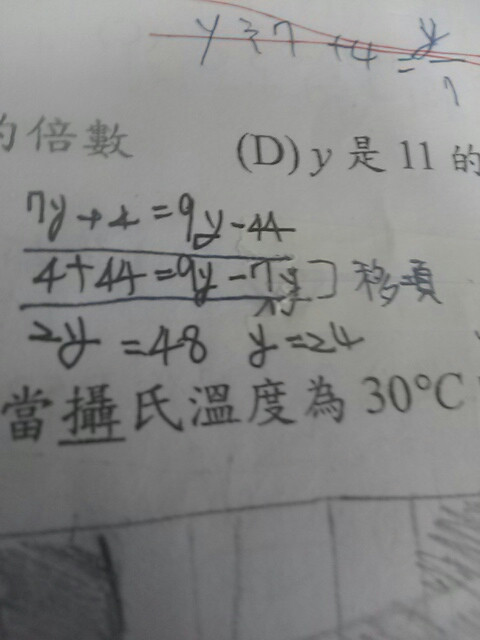 y ÷ 7 + 4 = y/7
的倍數 (D) y 是 11 的
7y + 4 = 9y - 44
4 + 44 = 9y - 7y ] 移項
2y = 48 y = 24
當攝氏溫度為 30°C